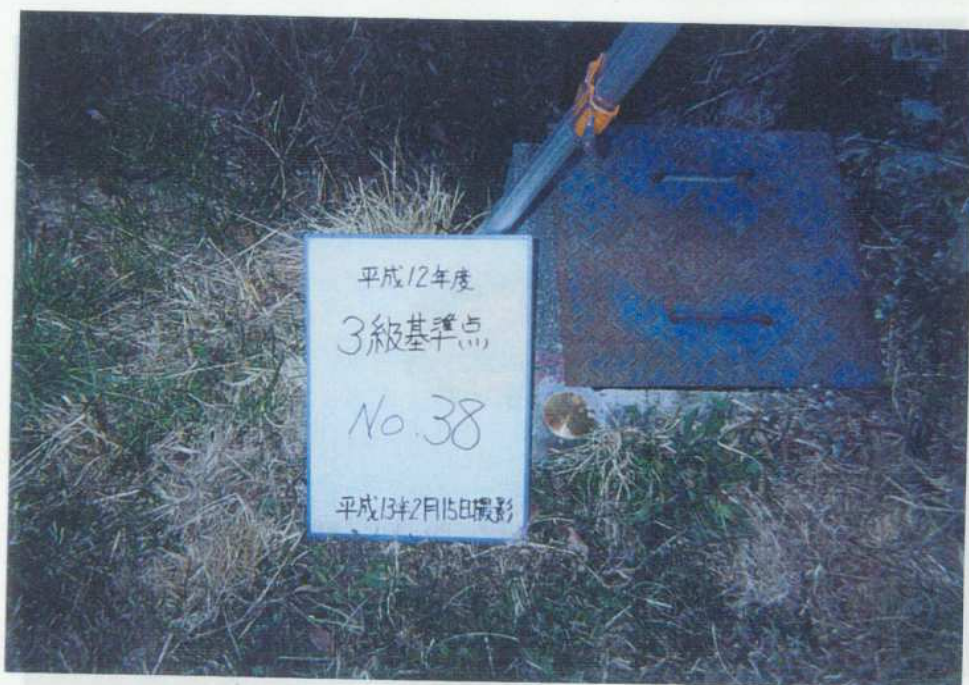 平成12年度
3級基準点
No.38
平成13年2月15日撮影